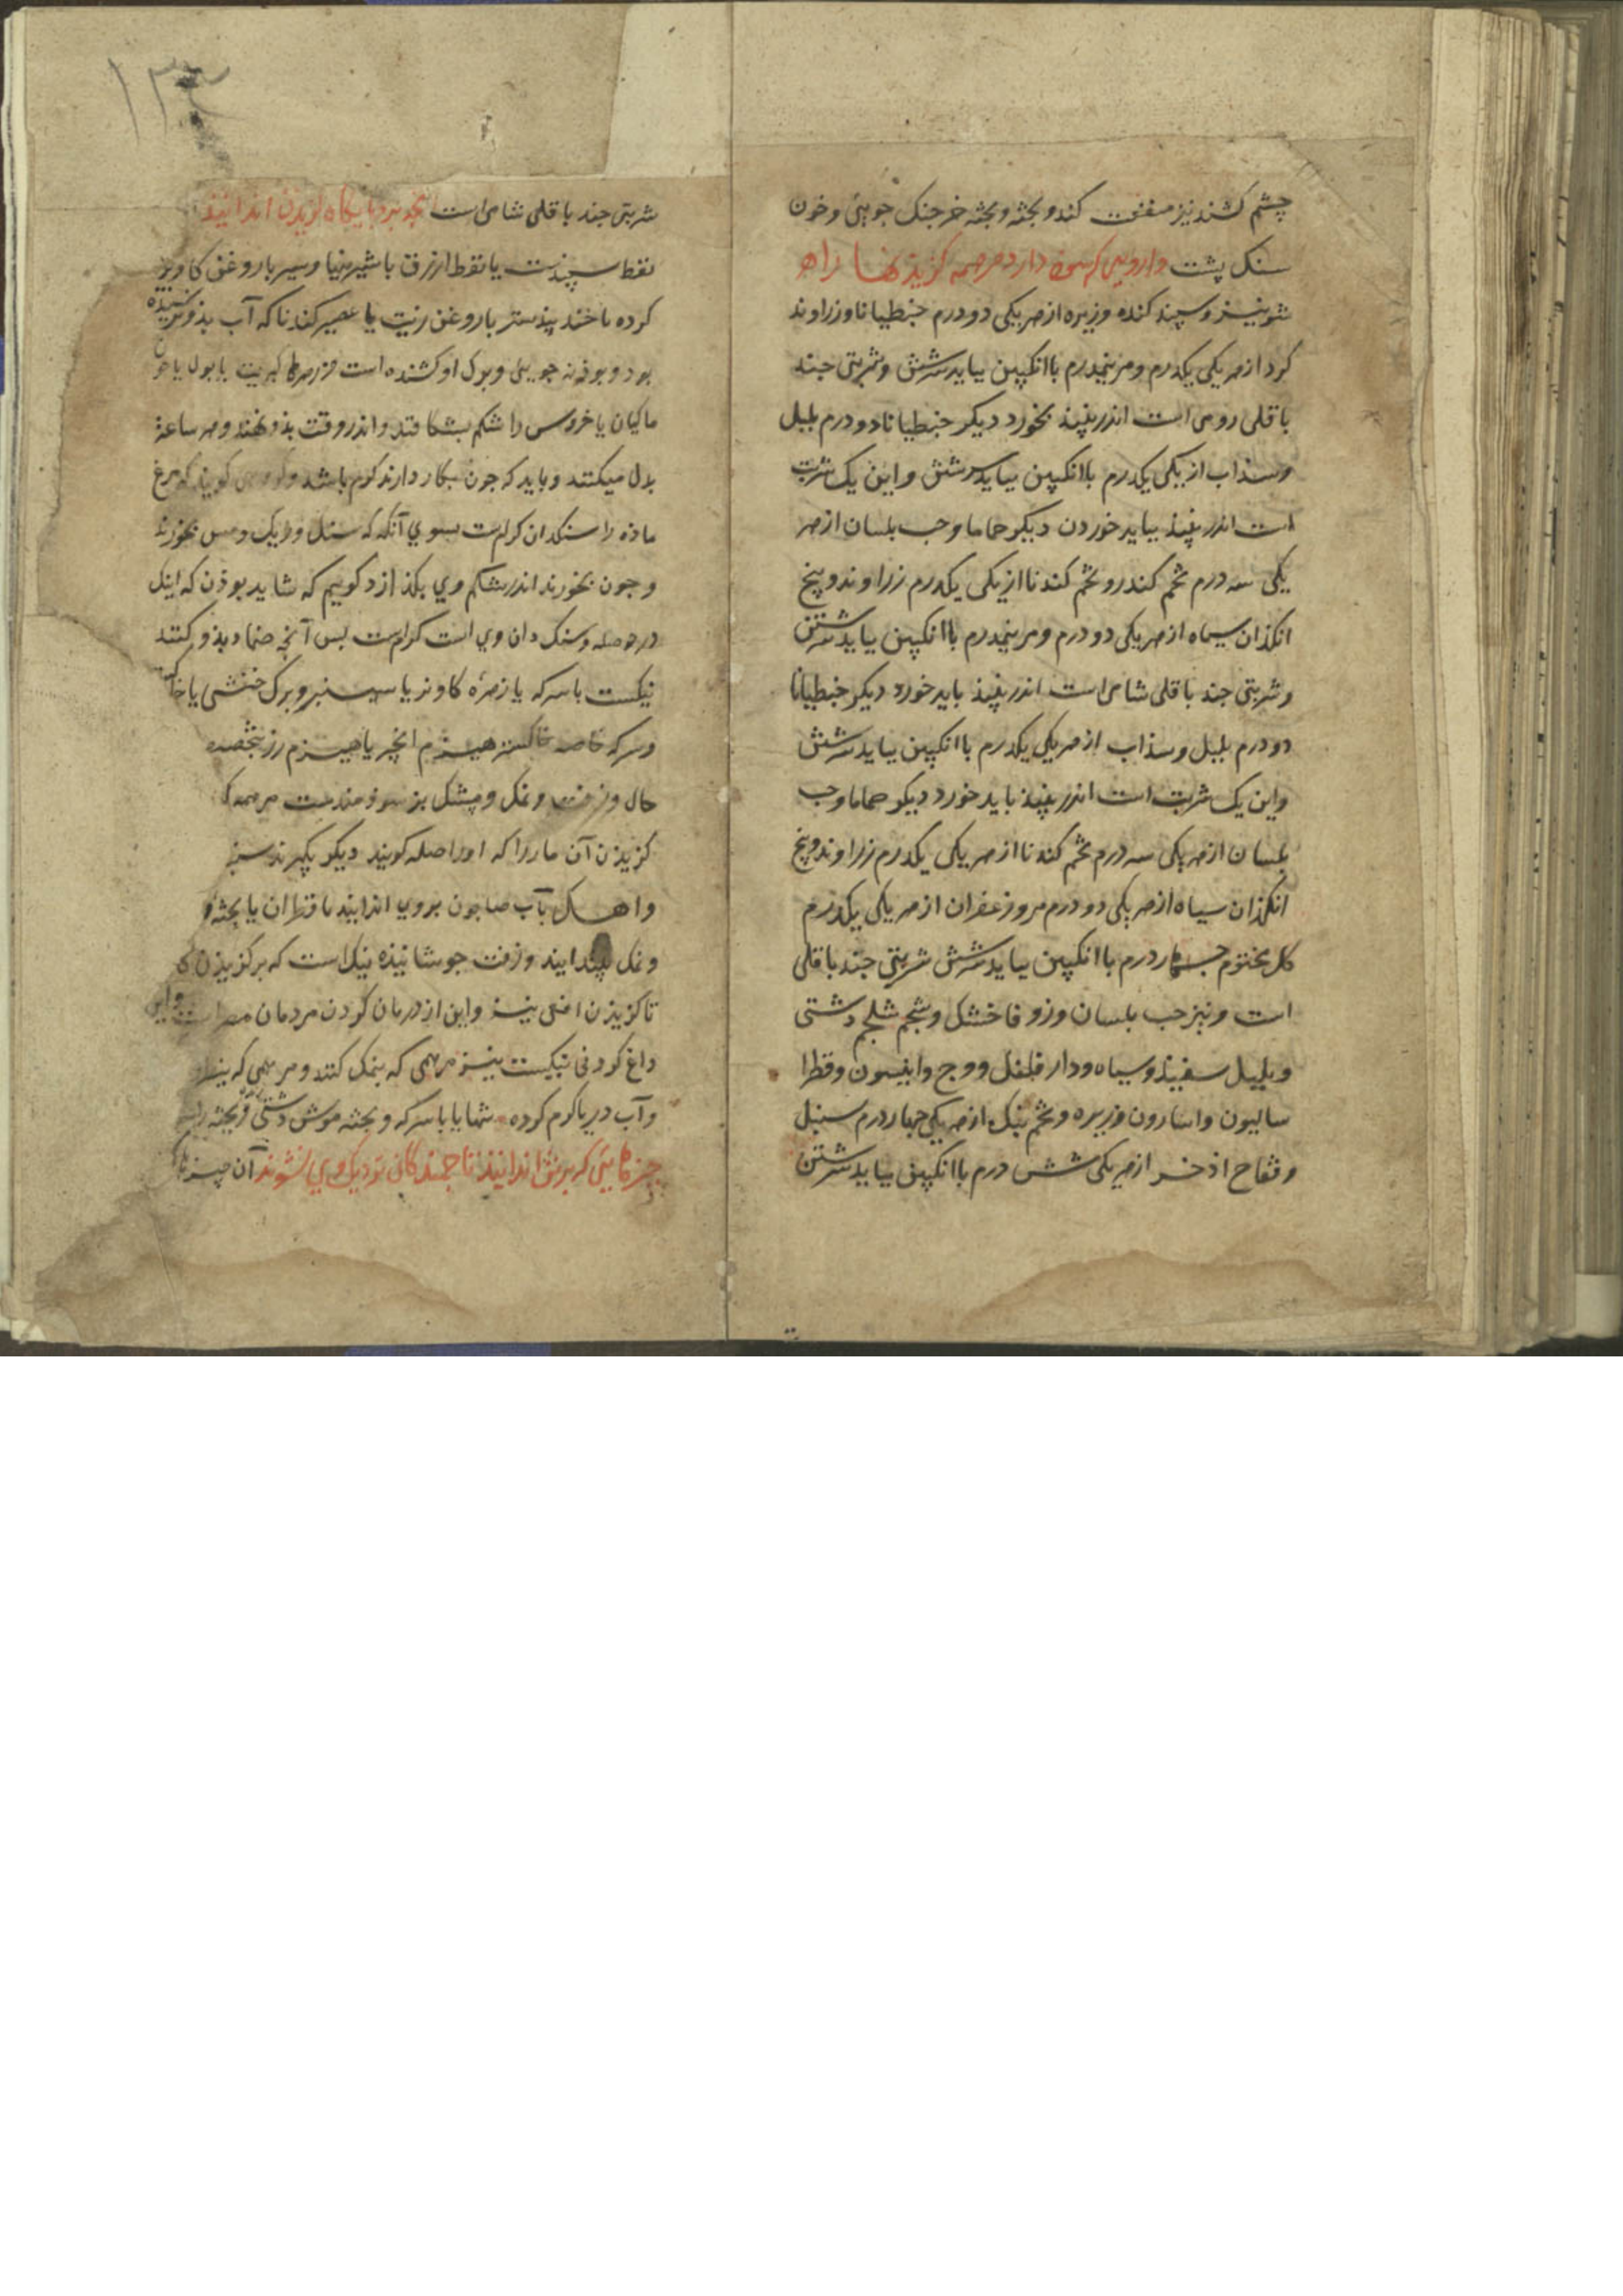 چشم کشند نیز منفعت کند و بجثه و بجثه خرجنک جویئی و خون
سنک پشت وارویی که سود دارد مر همه کزیذنها را
شونیز و سپند کنده و زیره از هر یکی دو درم جنطیانا و زراوند
کرد از هر یکی یکدرم و مر نیمدرم با انکپین بباید سرشتن و شربتی جند
باقلی رومی است اندر نپیذ بخورد دیکر جنطیانا دو درم بلبل
و سذاب از یکی یکدرم با انکپین بباید سرشتن و این یک شربت
است اندر نپیذ بباید خوردن دیکر حماما و حب بلسان از هر
یکی سه درم تخم کندر و تخم کندنا از یکی یکدرم زراوند و پنج
انکذان سیاه از هر یکی دو درم و مر نیمدرم با انکپین بباید سرشتن
و شربتی جند باقلی شامی است اندر نپیذ باید خورد دیکر جنطیانا
دو درم بلبل و سذاب از هر یکی یکدرم با انکپین بباید سرشتن
و این یک شربت است اندر نپیذ باید خورد دیکر حماما و حب
بلسان از هر یکی سه درم تخم کندنا از هر یکی یکدرم زراوند و پنج
انکذان سیاه از هر یکی دو درم مر و زعفران از هر یکی یکدرم
کل مختوم جهار درم با انکپین بباید سرشتن شربتی جند باقلی
است و نیز حب بلسان و زوفا خشک و تخم شلجم دشتی
و بلبل سفیذ و سیاه و دار فلفل و وج و انیسون و فطرا
سالیون و اسارون و زیره و تخم بنک از هر یکی جهار درم سنبل
و فقاح اذخر از هر یکی شش درم با انکپین بباید سرشتن
۱۳۴
شربتی جند باقلی شامی است آنچه بر جایکاه کزیذن اندایند
نفط سپیذست یا نفط ازرق با شیر بنیا و سیر با روغن کاو بریز
کرده یا جند بیذستر با روغن زیت یا عصیر کندنا که آب بذو نرسیده
بود و بوذنه جویئی و برک او کشنده است و زرهرها کبریت یا بول یا خون
ماکیان یا خروس را شکم بشکافند و اندر وقت بذو نهند و هر ساعة
بدل میکنند و باید که جون بکار دارند کرم باشد و کروهی کویند که مرغ
ماذه را سنکدان کرم است بسوی آنکه که سنک و ریک و مس بخورد
و جون بخورند اندر شکم وی بکذازد کویم که شاید بوذن که اینک
در حوصله و سنک دان وی است کرم است بس آنچه ضماد بذو کنند
نیکست با سرکه یا زهره کاو نر یا سیسنبر و برک خنثی یا خاکستر
و سرکه خاصه خاکستر هیزم انجیر یا هیزم رز بخصه
حال و زفت و نمک و پشک بز سوذمندست مر همه
کزیذن آن مار را که او را صله کویند دیکر بکیرند سیر
و اهک بآب صابون بر وی اندایند یا قطران یا بجثه
و نمک بیندایند و زفت جوشانیذه نیک است که بر کزیذن
تا کزیذن افعی نیز و این از درمان کردن مردمان مصر است و این
داغ کردنی نیکست نیز مرهمی که بنمک کنند و مرهمی که
و آب دریا کرم کرده تنها یا با سرکه و بجثه موش دشتی و بجثه
چیزهایی که بر تن اندایند تا جمندکان نزدیک وی نشوند آن چیزها